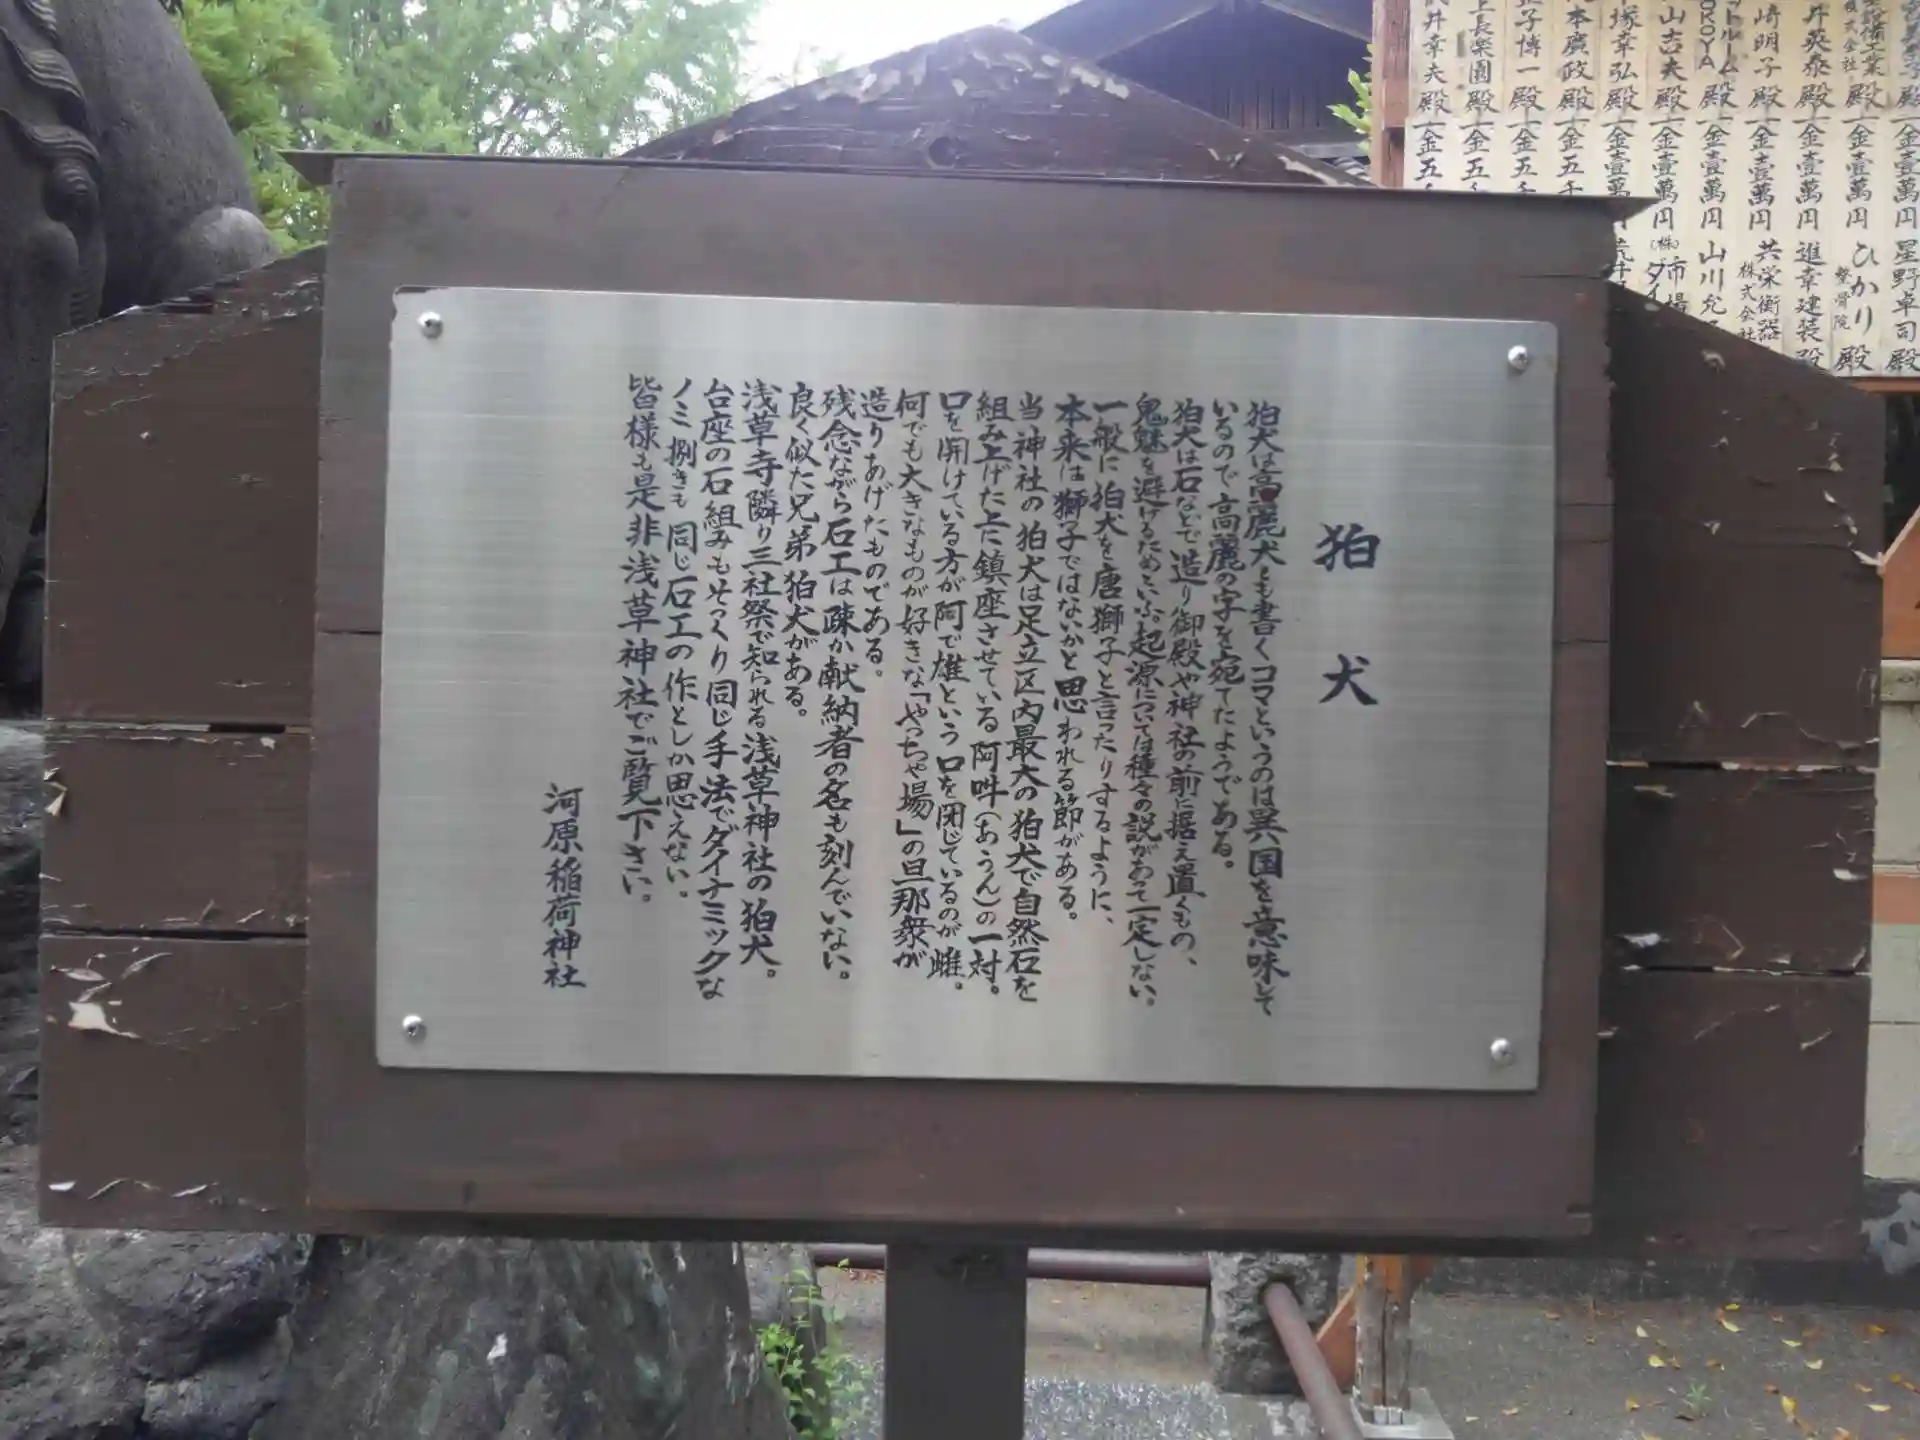 狛犬
狛犬は高麗犬とも書くコマというのは異国を意味して
いるので高麗の字を宛てたようである。
狛犬は石などで造り御殿や神社の前に据え置くもの、
鬼魅を避けるためという。起源については種々の説があって一定しない。
一般に狛犬を唐獅子と言ったりするように、
本来は獅子ではないかと思われる節がある。
当神社の狛犬は足立区内最大の狛犬で自然石を
組み上げた上に鎮座させている阿吽(あうん)の一対。
口を開けている方が阿で雄という口を閉じているのが雌。
何でも大きなものが好きな「やっちゃ場」の旦那衆が
造りあげたものである。
残念ながら石工は疎か献納者の名も刻んでいない。
良く似た兄弟狛犬がある。
浅草寺隣り三社祭で知られる浅草神社の狛犬。
台座の石組みもそっくり同じ手法でダイナミックな
ノミ捌きも同じ石工の作としか思えない。
皆様も是非浅草神社でご覧下さい。
河原稲荷神社
殿
殿
井英泰殿
崎明子殿
山吉夫殿
塚幸弘殿
本廣政殿
子博一殿
上長楽園殿
井幸夫殿
一金壹萬円 星野卓司殿
一金壹萬円 ひかり整骨院殿
一金壹萬円 進幸建装殿
一金壹萬円 共栄衡器株式会社
一金壹萬円 山川
一金壹萬円 (株)市場
一金壹萬円
一金五千
一金五千
一金五千
一金五